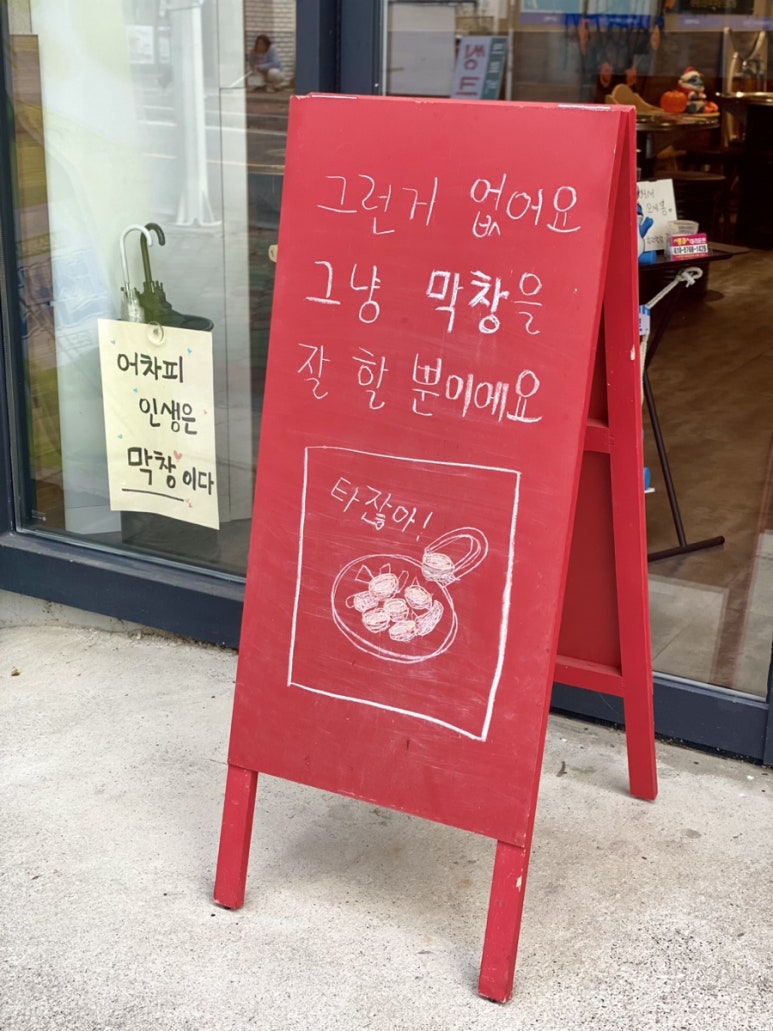 그런거 없어요
그냥 막창을
잘 할 뿐이에요
타잖아!
어차피
인생은
막창이다